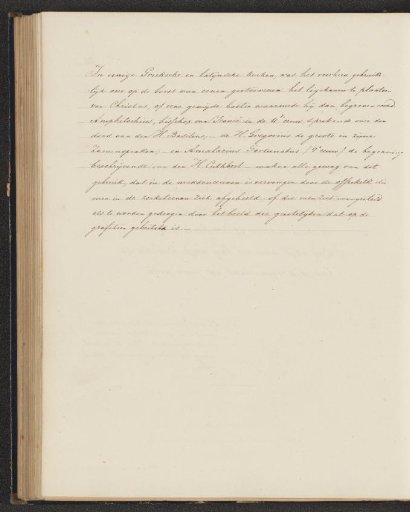 In eenige Grieksche en latijnsche kerken, was het voorheen gebruik-
lijk om op de borst van eenen gestorvenen het ligchaam te plaatsen
van Christus, of eene gewijde hostie waarmede hij dan begraven werd
Amphilochius, bisschop van in de 4e eeuw sprekende over den
dood van den H. Basilius, de H. Gregorius de groote in zijne
en Amalarius Fortunatus (9e eeuw) de begraving
beschrijvende van den H. Cuthbert maken alle gewag van dit
gebruik, dat in de middeneeuwen is vervangen door de die
men in de ziet afgebeeld of
als te worden gedragen door het beeld der geestelijken dat op de
grafsteen gebeiteld is.